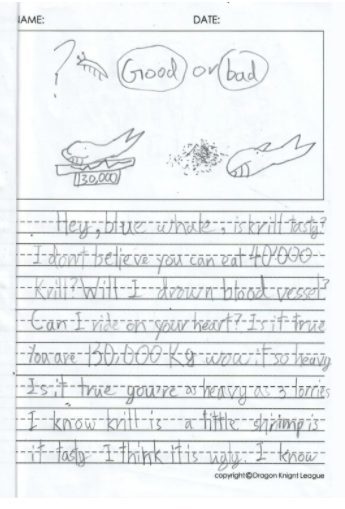 NAME: DATE:
? Good or bad
130,000
Hey, blue whale, is krill tasty?
I don't believe you can eat 40'000
Krill? Will I drown blood vessel?
Can I ride on your heart? Is it true
You are 130,000 Kg wow it so heavy
Is it true you're as heavy as 3 lorries
I know krill is a little shrimp is
it tasty I think it is ugly. I know
copyright©Dragon Knight League